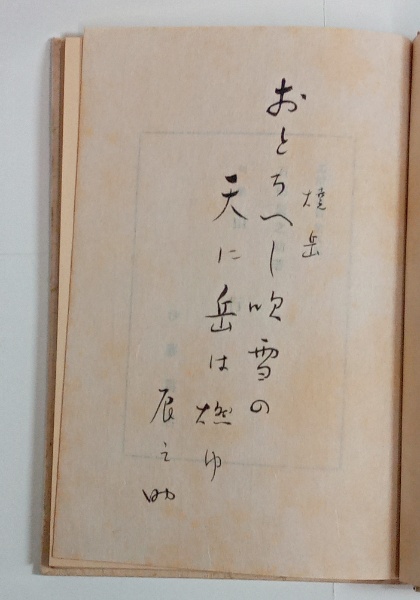 燒岳
おとろへし吹雪の
天に岳は燃ゆ
辰之助